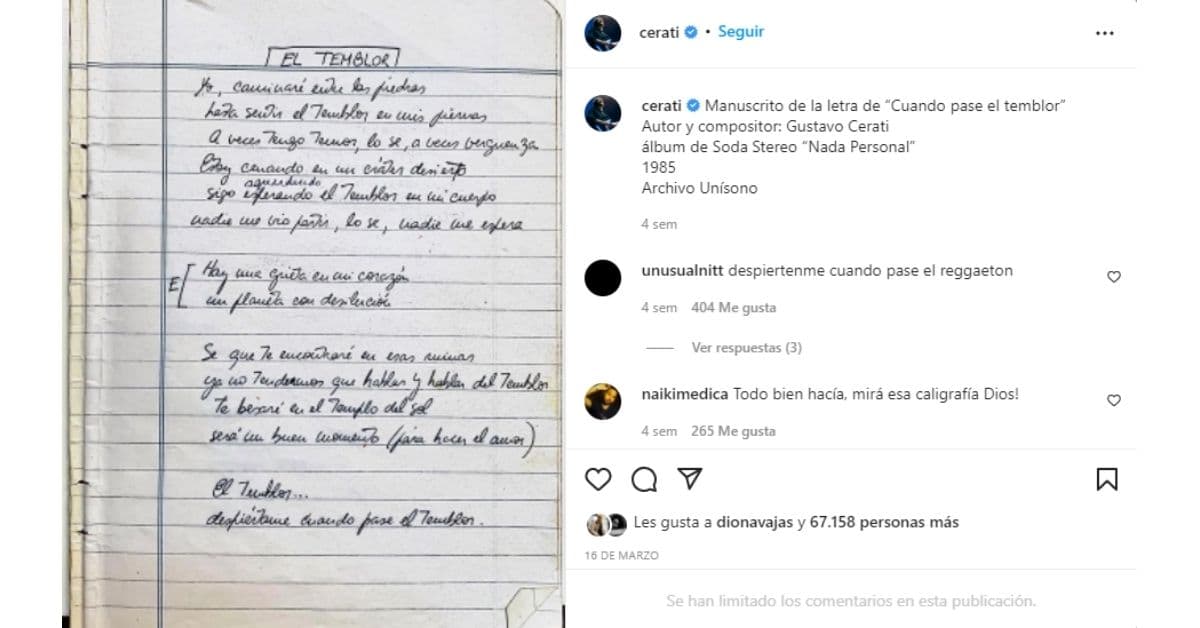 EL TEMBLOR
Yo, caminaré entre las piedras
hasta sentir el Temblor en mis piernas
A veces Tengo Temor, lo se, a veces verguenza
Estoy cenando en un cráter desierto
aguardando
sigo esperando el Temblor en mi cuerpo
nadie me vio partir, lo se, nadie me espera
E[
Hay una grieta en mi corazón
un planeta con desilución
Se que Te encontraré en esas ruinas
ya no Tendremos que hablar y hablar del Temblor
Te besaré en el Templo del sol
será un buen momento (para hacer el amor)
El Temblor...
despiértame cuando pase el Temblor.
cerati • Seguir
...
cerati Manuscrito de la letra de “Cuando pase el temblor”
Autor y compositor: Gustavo Cerati
álbum de Soda Stereo “Nada Personal”
1985
Archivo Unísono
4 sem
unusualnitt despiertenme cuando pase el reggaeton
4 sem 404 Me gusta
Ver respuestas (3)
naikimedica Todo bien hacía, mirá esa caligrafía Dios!
4 sem 265 Me gusta
Les gusta a dionavajas y 67.158 personas más
16 DE MARZO
Se han limitado los comentarios en esta publicación.